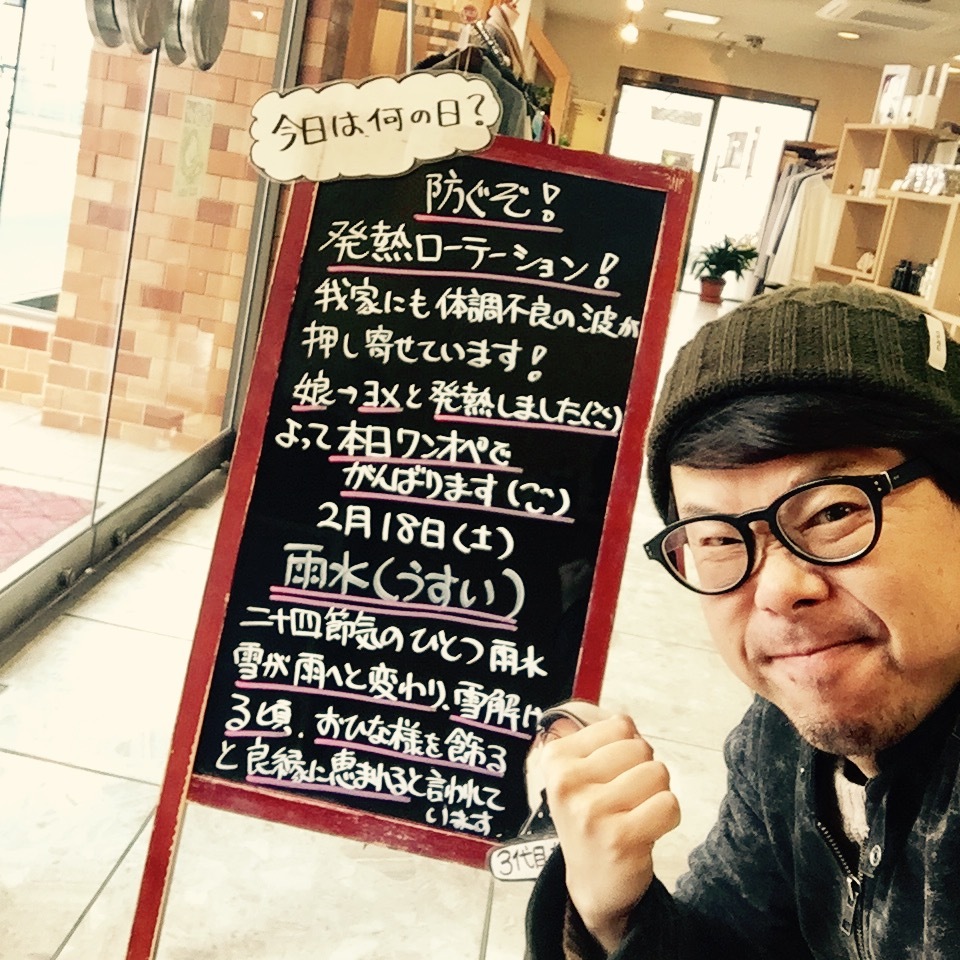 今日は何の日?
防ぐぞ!
発熱ローテーション!
我家にも体調不良の波が
押し寄せています!
娘→ヨメと発熱しました(´;ω;`)
よって本日ワンオペで
がんばります(
2月18日(土)
雨水(うすい)
二十四節気のひとつ雨水
雪が雨へと変わり、雪解け
る頃、おひな様を飾る
と良縁に恵まれると言われて
います。
3代目